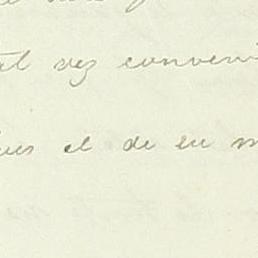 tal vez conveni
el de su m